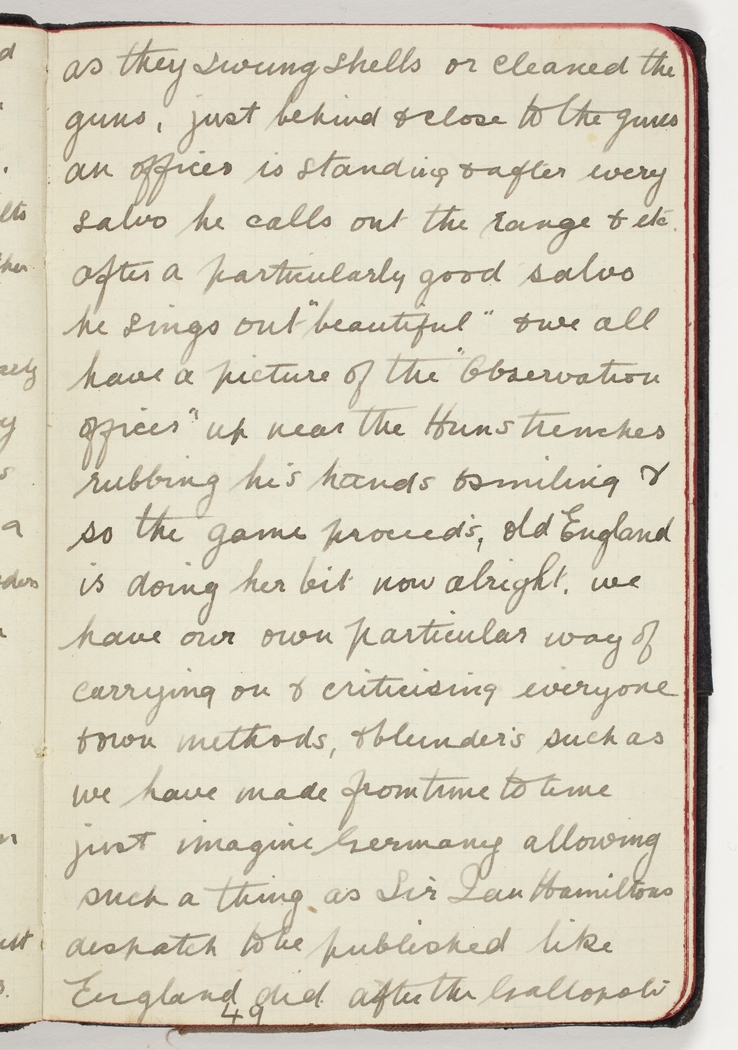 as they swung shells or cleaned the
guns, just behind & close to the guns
an officer is standing & after every
salvo he calls out the range & etc.
after a particularly good salvo
he sings out "beautiful" & we all
have a picture of the "Observation
officer" up near the Huns trenches
rubbing his hands & smiling &
so the game proceeds, old England
is doing her bit now alright. we
have our own particular way of
carrying on & criticising everyone
& own methods, & blunders such as
we have made from time to time
just imagine Germany allowing
such a thing as Sir Ian Hamiltons
despatch to be published like
England did after the Gallopoli
49